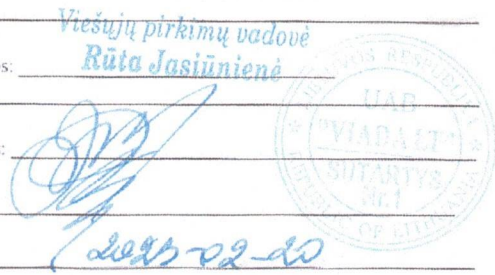 Viešųjų pirkimų vadovė
Rūta Jasiūnienė
LIETUVOS RESPUBLIKA
UAB
"VIADA LT"
SUTARTYS
Nr.1
REPUBLIC OF LITHUANIA
2023-02-20